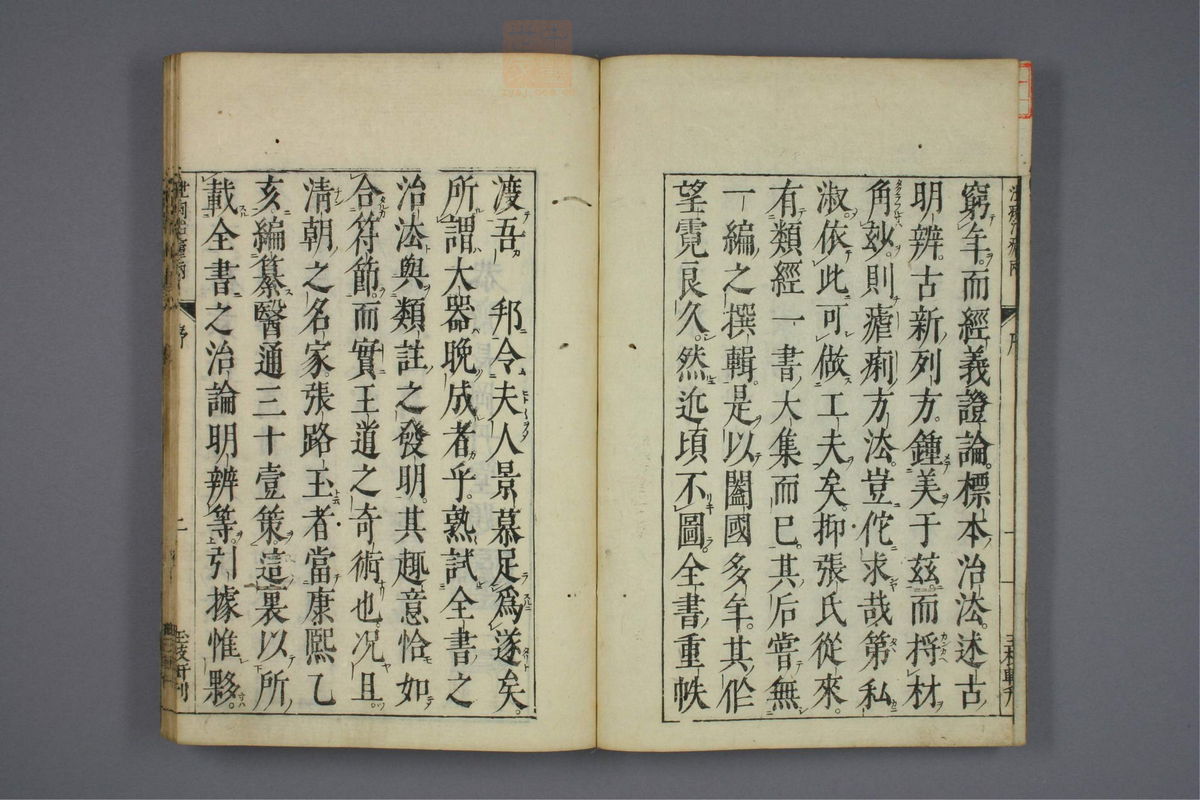 窮年。而經義證論。標本治法。述古
明辨。古新列方。鍾美于玆而捋材
角玅。則瘧痢方法。豈佗求哉第私
淑依此可做工夫矣。抑張氏從來。
有類經一書大集而已。其后嘗無
一編之撰輯。是以闔國多年。其仱
望霓良久。然近頃不圖。全書重帙
渡吾　邦令夫人景慕足爲遂矣。
所謂大器晚成者乎。熟試全書之
治法與類註之發明。其趣意恰如
合符節。而實王道之奇術也况且
淸朝之名家。張路玉者當康熙乙
亥編纂醫通三十壹策。這裏以所
載全書之治論明辨等。引據惟夥。
序
二